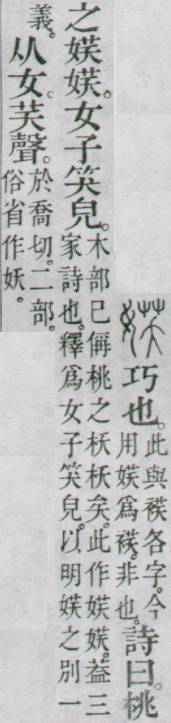 𡝩 巧也。此與䄏各字。今用𡝩爲䄏。非也。詩曰。桃
之𡝩𡝩。女子笑皃。木部已偁桃之枖枖矣。此作𡝩𡝩。葢三家詩也。釋爲女子笑皃。以明𡝩之別一
義。从女。芺聲。於喬切。二部。俗省作妖。